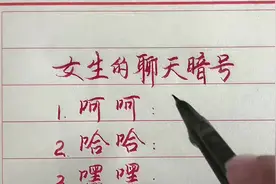 女生的聊天暗号
1.呵呵:
2.哈哈:
3.嘿嘿: